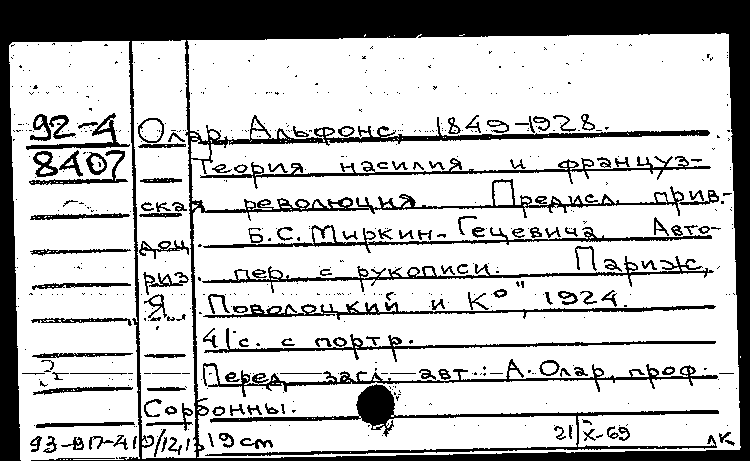 92-4 Олар, Альфонс, 1849-1928.
8407 Теория насилия и француз-
ская революция. Предисл. прив.-
доц. Б.С. Миркин-Гецевича. Авто-
риз. пер. с рукописи. Париж,
"Я. Поволоцкий и К°", 1924.
41 с. с портр.
Перед загл. авт.: А. Олар, проф.
Сорбонны.
19 cm 21/X-69 ЛК